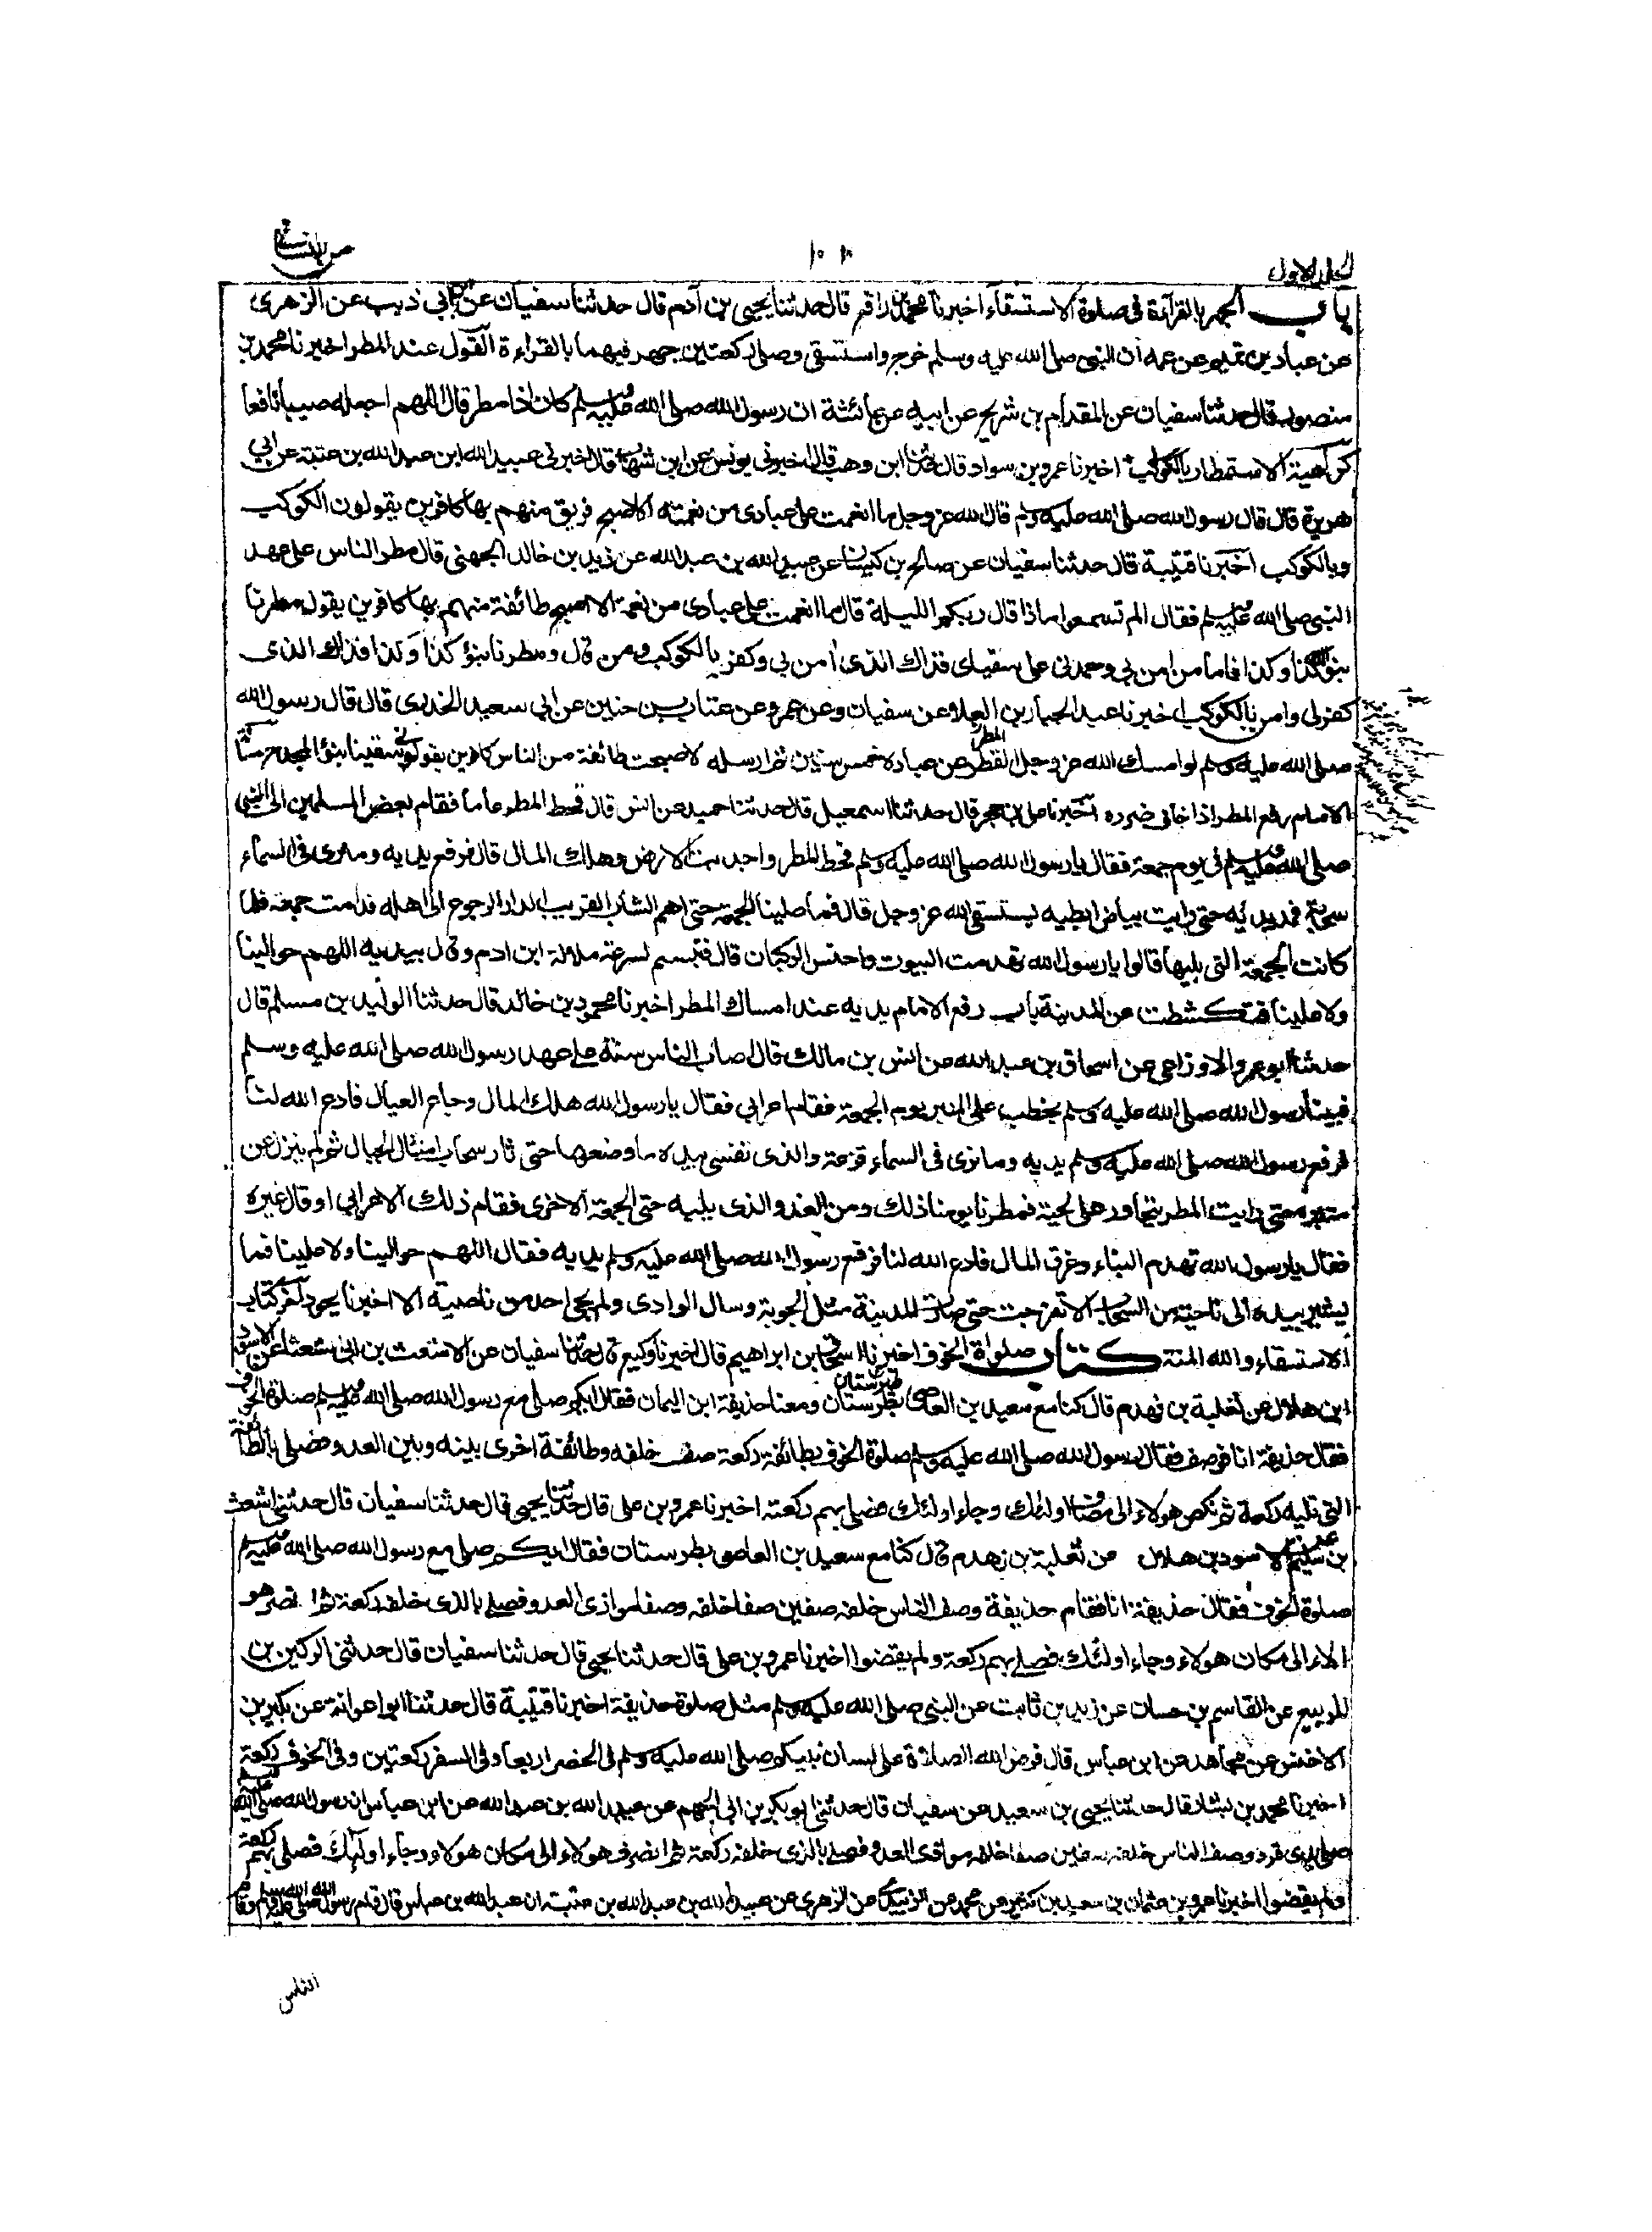 الجلد الاول
من النسائي
باب الجهر بالقراءة فى صلوة الاستسقاء اخبرنا محمد بن رافع قال حدثنا يحيى بن آدم قال حدثنا سفيان عن ابن ابي ذيب عن الزهرى
عن عباد بن تميم عن عمه ان النبى صلى الله عليه وسلم خرج واستسقى وصلى ركعتين جهر فيهما بالقراءة القول عند المطر اخبرنا محمد بن
منصور قال حدثنا سفيان عن المقدام بن شريح عن ابيه عن عائشة ان رسول الله صلى الله عليه وسلم كان اذا مطر قال اللهم اجعله صيبا نافعا
كراهية الاستمطار بالكوكب اخبرنا عمرو بن سواد قال حدثنا ابن وهب قال اخبرنى يونس عن ابن شهاب قال اخبرنى عبيد الله ابن عبد الله بن عتبة عن ابي
هريرة قال قال رسول الله صلى الله عليه وسلم قال الله عز وجل ما انعمت على عبادى من نعمته الا اصبح فريق منهم بها كافرين يقولون الكوكب
وبالكوكب اخبرنا قتيبة قال حدثنا سفيان عن صالح بن كيسان عن عبيد الله بن عبد الله عن زيد بن خالد الجهنى قال مطر الناس على عهد
النبى صلى الله عليه وسلم فقال الم تسمعوا ماذا قال ربكم الليلة قال ما انعمت على عبادى من نعمة الا اصبح طائفة منهم بها كافرين يقول مطرنا
بنوء كذا وكذا فاما من امن بي وحمدنى على سقياى فذاك الذى امن بي وكفر بالكوكب ومن قال ومطرنا بنؤ كذا وكذا فذاك الذى
كفر لى وامن بالكوكب اخبرنا عبد الجبار بن العلاء عن سفيان وعن عمرو عن عتاب بن حنين عن ابي سعيد الخدرى قال قال رسول الله
صلى الله عليه وسلم لو امسك الله عز وجل القطر المطر عن عباده خمس سنين ثم ارسله لاصبحت طائفة من الناس كافرين يقولون سقينا بنؤ المجدح مسئلة
الامام رفع المطر اذا خاف ضرره اخبرنا على بن حجر قال حدثنا اسمعيل قال حدثنا حميد عن انس قال قحط المطر عاما فقام بعض المسلمين الى النبى
صلى الله عليه وسلم فى يوم جمعة فقال يا رسول الله صلى الله عليه وسلم قحط المطر واجدبت الارض وهلك المال قال فرفع يديه وما نرى فى السماء
سحابة فمد يديه حتى رايت بياض ابطيه يستسقى الله عز وجل قال فما صلينا الجمعة حتى اهم الشاب القريب الدار الرجوع الى اهله فدامت جمعة فلما
كانت الجمعة التى يليها قالوا يا رسول الله تهدمت البيوت واحتبس الركبان قال فتبسم لسرعة ملالة ابن ادم وقال بيديه اللهم حوالينا
ولا علينا فتكشطت عن المدينة باب رفع الامام يديه عند امساك المطر اخبرنا محمود بن خالد قال حدثنا الوليد بن مسلم قال
حدثنا ابو عمرو الاوزاعى عن اسحاق بن عبد الله عن انس بن مالك قال اصاب الناس سنة على عهد رسول الله صلى الله عليه وسلم
فبينا رسول الله صلى الله عليه وسلم يخطب على المنبر يوم الجمعة فقام اعرابي فقال يا رسول الله هلك المال وجاع العيال فادع الله لنا
فرفع رسول الله صلى الله عليه وسلم يديه وما نرى فى السماء قزعة والذى نفسى بيده ما وضعها حتى ثار سحاب امثال الجبال ثم لم ينزل عن
منبره حتى رايت المطر يتحادر على لحيته فمطرنا يومنا ذلك ومن الغد والذى يليه حتى الجمعة الاخرى فقام ذلك الاعرابي او قال غيره
فقال يا رسول الله تهدم البناء وغرق المال فادع الله لنا فرفع رسول الله صلى الله عليه وسلم يديه فقال اللهم حوالينا ولا علينا فما
يشير بيده الى ناحية من السحاب الا تفرجت حتى صارت المدينة مثل الجوبة وسال الوادى ولم يجئ احد من ناحية الا اخبرنا بجود آخر كتاب
الاستسقاء ولله المنة كتاب صلواة الخوف اخبرنا اسحاق بن ابراهيم قال اخبرنا وكيع قال حدثنا سفيان عن الاشعث بن ابى شعثاء عن الاسود
ابن هلال عن ثعلبة بن زهدم قال كنا مع سعيد بن العاصى بطبرستان ومعنا حذيفة ابن اليمان فقال ايكم صلى مع رسول الله صلى الله عليه وسلم صلوة الخوف
فقال حذيفة انا فوصف فقال رسول الله صلى الله عليه وسلم صلوة الخوف بطائفة ركعة صف خلفه وطائفة اخرى بينه وبين العدو فصلى بالطائفة
التى تليه ركعة ثم نكص هولاء الى مصاف اولئك وجاء اولئك فصلى بهم ركعة اخبرنا عمرو بن على قال حدثنا يحيى قال حدثنا سفيان قال حدثنى اشعث
بن سليم عن الاسود بن هلال عن ثعلبة بن زهدم قال كنا مع سعيد بن العاصى بطبرستان فقال ايكم صلى مع رسول الله صلى الله عليه وسلم
صلوة الخوف فقال حذيفة انا فقام حذيفة وصف الناس خلفه صفين صفا خلفه وصفا موازى العدو فصلى بالذى خلفه ركعة ثم انصرف هو
الاء الى مكان هولاء وجاء اولئك فصلى بهم ركعة ولم يقضوا اخبرنا عمرو بن على قال حدثنا يحيى قال حدثنا سفيان قال حدثنى الركين بن
الربيع عن القاسم بن حسان عن زيد بن ثابت عن النبى صلى الله عليه وسلم مثل صلوة حذيفة اخبرنا قتيبة قال حدثنا ابو عوانة عن بكير بن
الاخنس عن مجاهد عن ابن عباس قال فرض الله الصلاة على لسان نبيكم صلى الله عليه وسلم فى الحضر اربعا وفى السفر ركعتين وفى الخوف ركعة
اخبرنا محمد بن بشار قال حدثنا يحيى بن سعيد عن سفيان قال حدثنى ابو بكر بن ابى الجهم عن عبيد الله بن عبد الله عن ابن عباس ان رسول الله صلى الله عليه وسلم
صلى بذى قرد وصف الناس خلفه صفين صفا خلفه وصفا موازى العدو فصلى بالذى خلفه ركعة ثم انصرف هولاء الى مكان هولاء وجاء اولئك فصلى بهم ركعة
ولم يقضوا اخبرنا عمرو بن عثمان بن سعيد بن كثير عن محمد عن الزبيدى عن الزهرى عن عبيد الله بن عبد الله بن عتبة ان عبد الله بن عباس قال قام رسول الله صلى الله عليه وسلم وقام
الناس